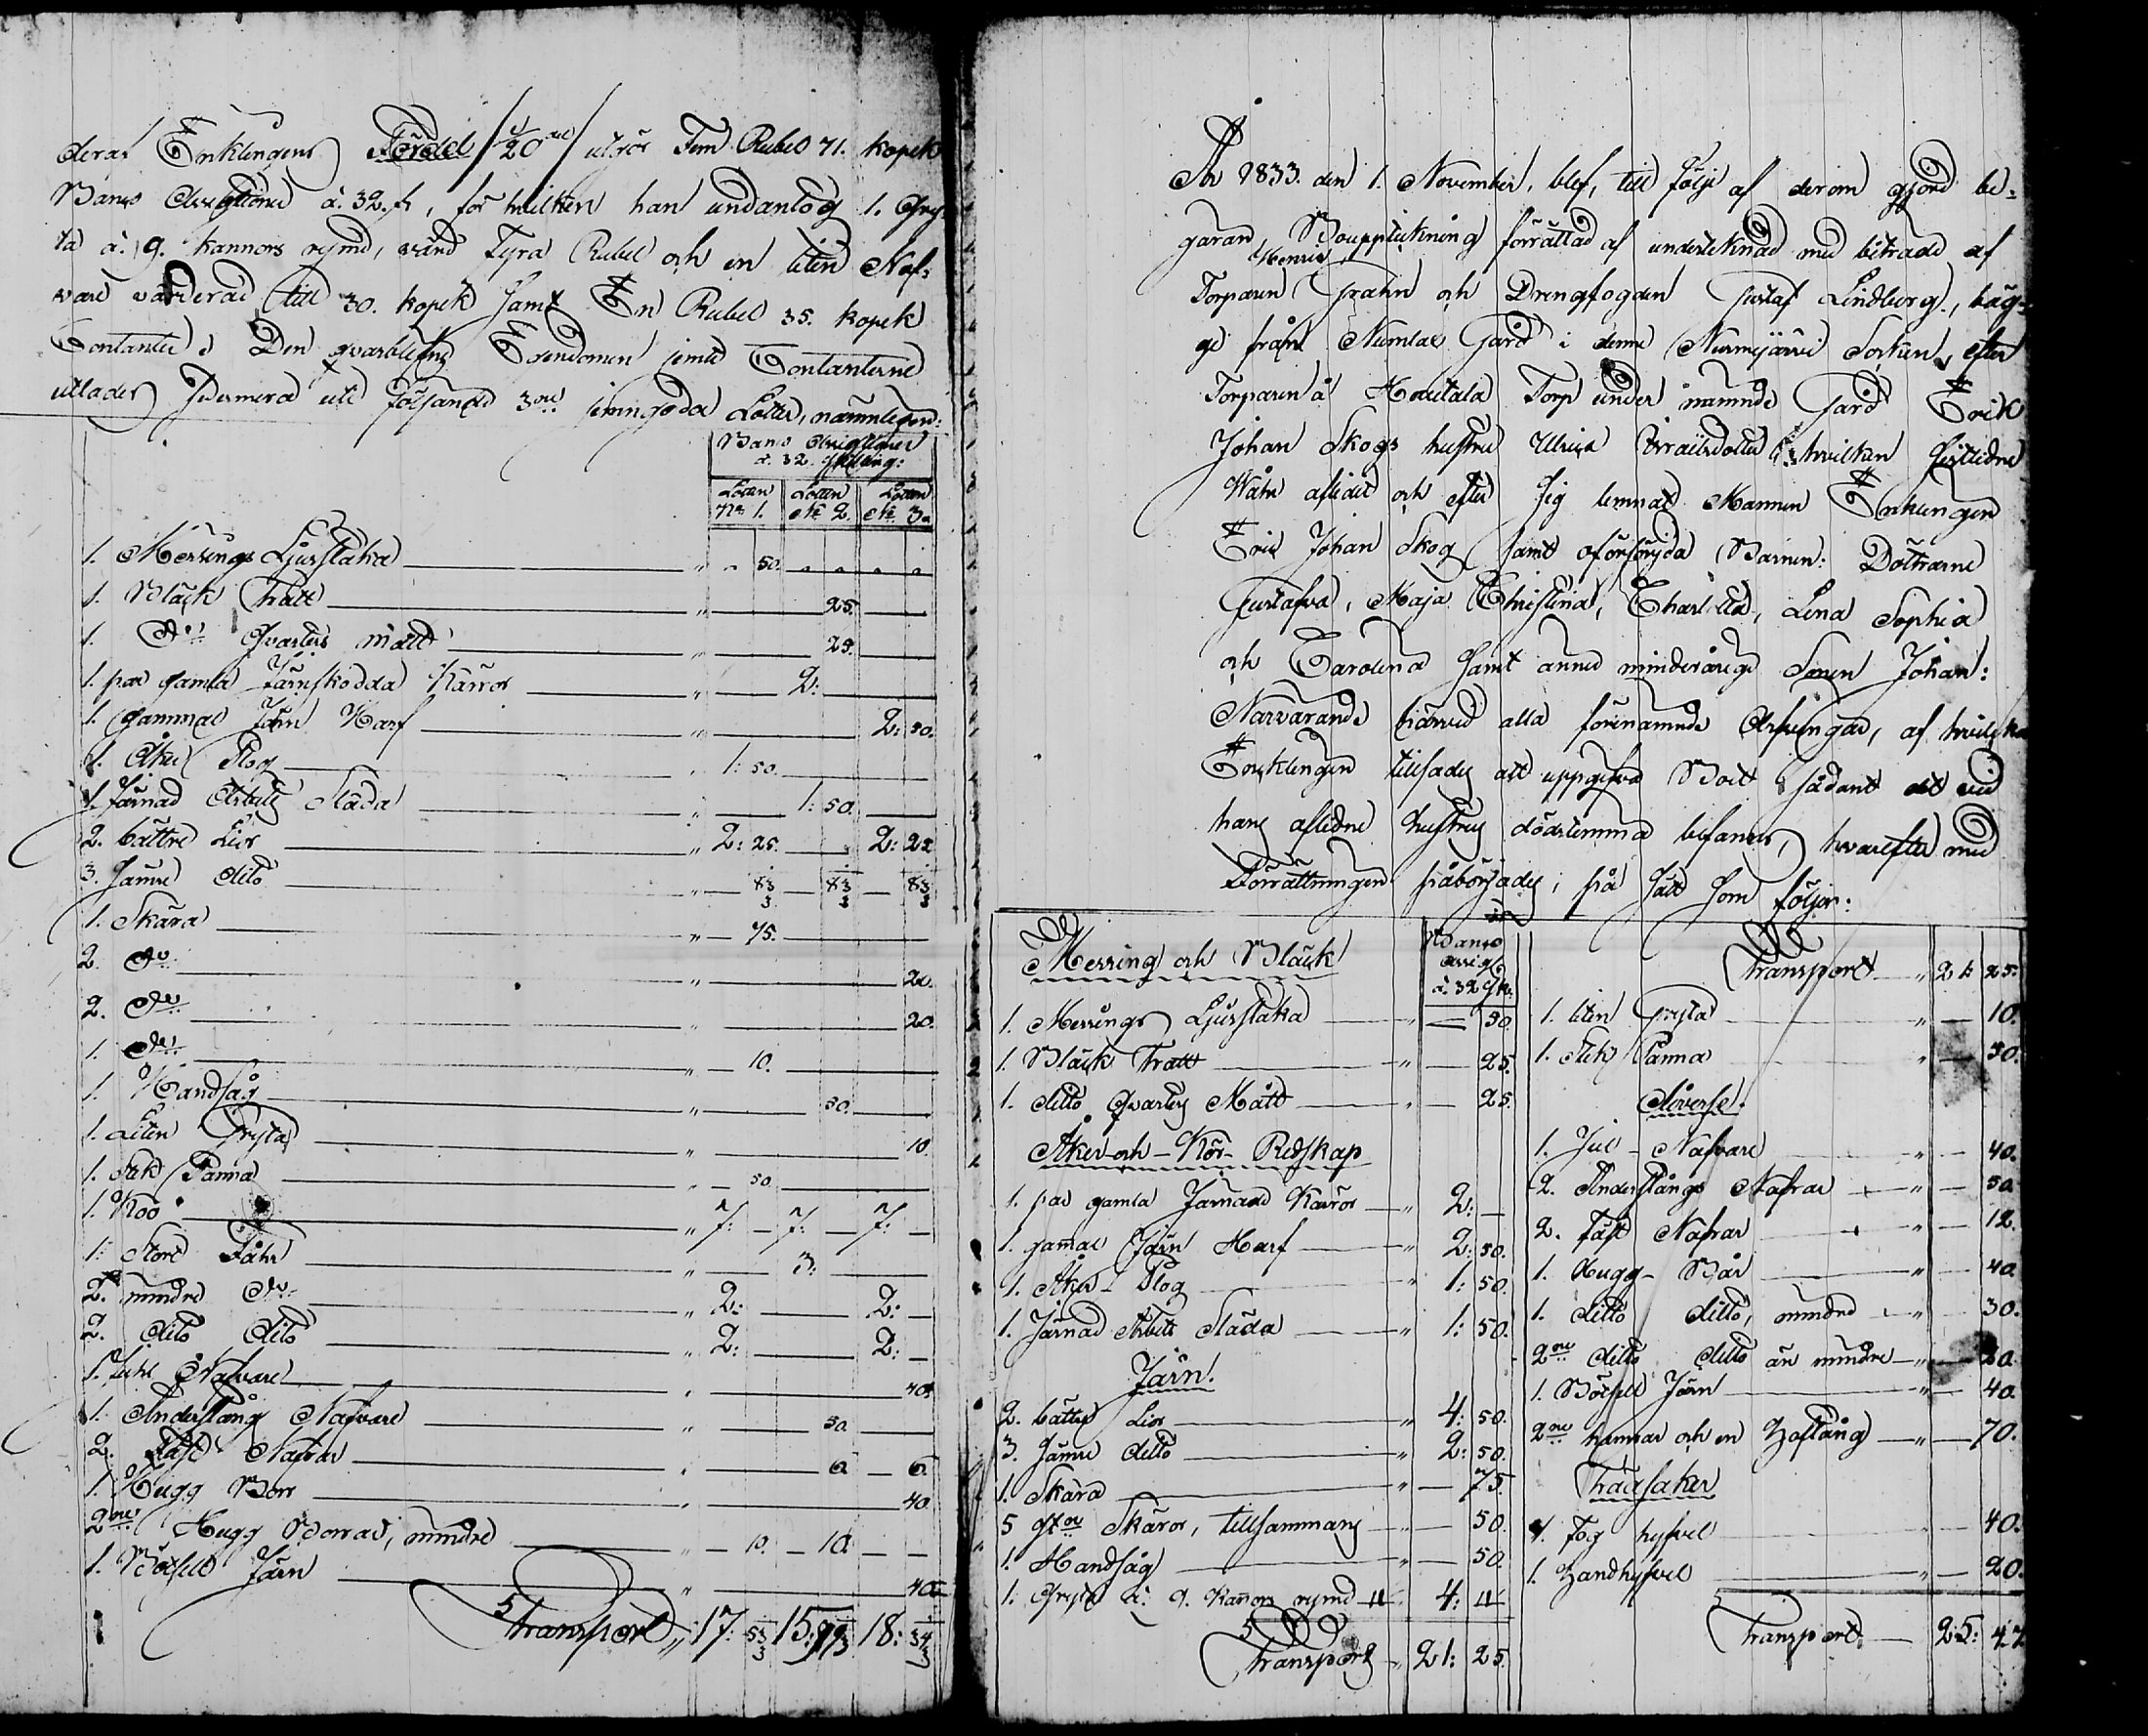 deraf Enklingens Fördel /1/20 del/ utgör Fem Rubel 71. kopek
Banco Assignationer à 32. sk, för hvilken han undantog 1. Gry-
ta à 9. kannors rymd, värd Fyra Rubel och en liten Naf-
vare värderad till 30. kopek samt En Rubel 35. kopek
Contanter. Den qvarblefne Egendomen jemte Contanterne
utlades sedermera uti följande 3ne jemngoda Lotter, nämnligen:
Banco Assignationer
à 32. skilling:
Lotten No 1. Lotten No 2. Lotten No 3.
1. Messings Ljusstaka " " 50. " " " "
1. Bläck Tratt " 25.
1. Do Qvarters mått " 25.
1. par gamla Järnskodda Kärror " 2:
1. gammal Järn Harf " 2: 50.
1. Åker Plog " 1: 50.
1. Järnad Arbets Släda " 1: 50.
2. bättre Liar " 2: 25. 2: 25
3. sämre dito " 83 1/3 83 1/3 83 1/3
1. Skära " 75.
2. Do " 20.
2. Do " 20.
1. Do " 10.
1. Handsåg " 50.
1. Liten Gryta " 10.
1. Stek Panna " 50
1. Koo " 7: 7: 7:
1. Stort Fåhr " 3:
2. mindre Do " 2: 2:
2. dito dito " 2: 2:
1. Juhl Nafvare " 40.
1. Anderstång Nafvare " 50.
2. Fäst Nafvar " 6. 6.
1. Hugg Borr " 40.
2ne Hugg Borrar, mindre " 10. 10.
1. Bötsell Järn " 40.
Transport " 17: 53 1/3 15: 99 1/3 18: 34 1/3
År 1833. den 1. November, blef, till följe af derom gjord be-
garan, Bouppteckning förrättad af undertecknad med biträde af
Henric
Torparen Grahn och Drengfogden Gustaf Lindberg, bäg-
ge från Numlax Gård i denne Nurmijärvi Socken, efter
Torparen å Torp under nämnde Gård Erik
Johan Skogs hustru Ulrica hvilken sistledne
aflidit och efter sig lemnat Mannen Enklingen
Eric Johan Skog samt oförsörjda Barnen: Döttrarne
Gustafva, Maja Christina, Charlotta, Lena Sophia
och Carolina samt ännu minderårige Sonen Johan:
Närvarande härvid alla förenämnde Arfvingar, af hvilka
Enklingen tillsades att uppgifva Boet sådant det vid
hans aflidne hustrus dödstimma befanns, hvarefter med
Förrättningen påbörjades, på sätt som följer:
Messing och Bläck
Banco
Assig.
à 32 sk.
1. Messings Ljusstaka " 50.
1. Bläck Tratt " 25.
1. ditto Qvarters Mått " 25.
Åker- och Kör- Redskap
1. par gamla Järnade Kärror " 2:
1. gamal Järn Harf " 2: 50.
1. Åker- Plog " 1: 50.
1. Järnad Arbets Släda " 1: 50.
Järn.
2. bättre Liar " 4: 50.
3. sämre ditto " 2: 50.
1. Skära " 75.
5 st:n Skäror, tillsammans " 50.
1. Handsåg " 50.
1. Gryta à 9. Kannors rymd " 4: "
Transport " 21: 25.
Transport " 21: 25.
1. liten Gryta " 10.
1. Stek Panna " 50.
Diverse.
1. Jul- Nafvare " 40.
2. Anderstångs Nafrar " 50.
2. Fäst Nafrar " 12.
1. Hugg- Bår " 40.
1. ditto ditto, mindre " 30.
2ne ditto ditto än mindre " 20.
1. Bötsell Järn " 40.
2ne hamrar och en Hoftång " 70.
Träsaker
1. Fog hyfvel " 40.
1. Handhyfvel " 20.
Transport 25: 47